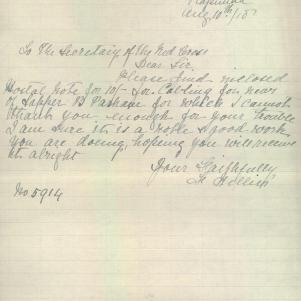 Aug 10th/15
To The Secretary of the Red Cross
Dear Sir,
Please find inclosed
Postal Note for 10/- for Cabling for news
of Sapper B Parham for which I cannot
thank you enough for your trouble
I am sure it is a noble & good work
you are doing, hoping you will receive
it alright
Yours Faithfully
No 5914